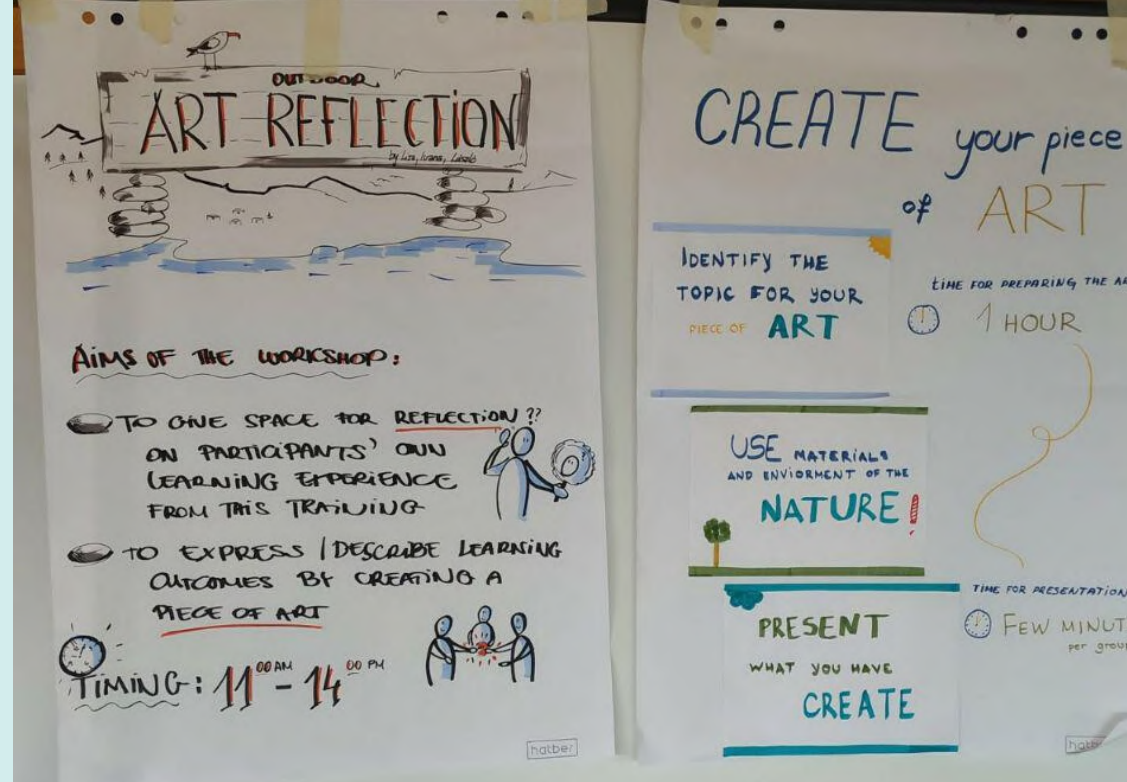 OUTDOOR
ART REFLECTION
AIMS OF THE WORKSHOP:
TO GIVE SPACE FOR REFLECTION??
ON PARTICIPANTS' OWN
LEARNING EXPERIENCE
FROM THIS TRAINING
TO EXPRESS / DESCRIBE LEARNING
OUTCOMES BY CREATING A
PIECE OF ART
TIMING: 11 00 AM - 14 00 PM
hatber
CREATE your piece
of ART
IDENTIFY THE
TOPIC FOR YOUR
PIECE OF ART
TIME FOR PREPARING THE
1 HOUR
USE MATERIALS
AND ENVIORMENT OF THE
NATURE!
PRESENT
WHAT YOU HAVE
CREATE
TIME FOR PRESENTATION
FEW MINUT
per group